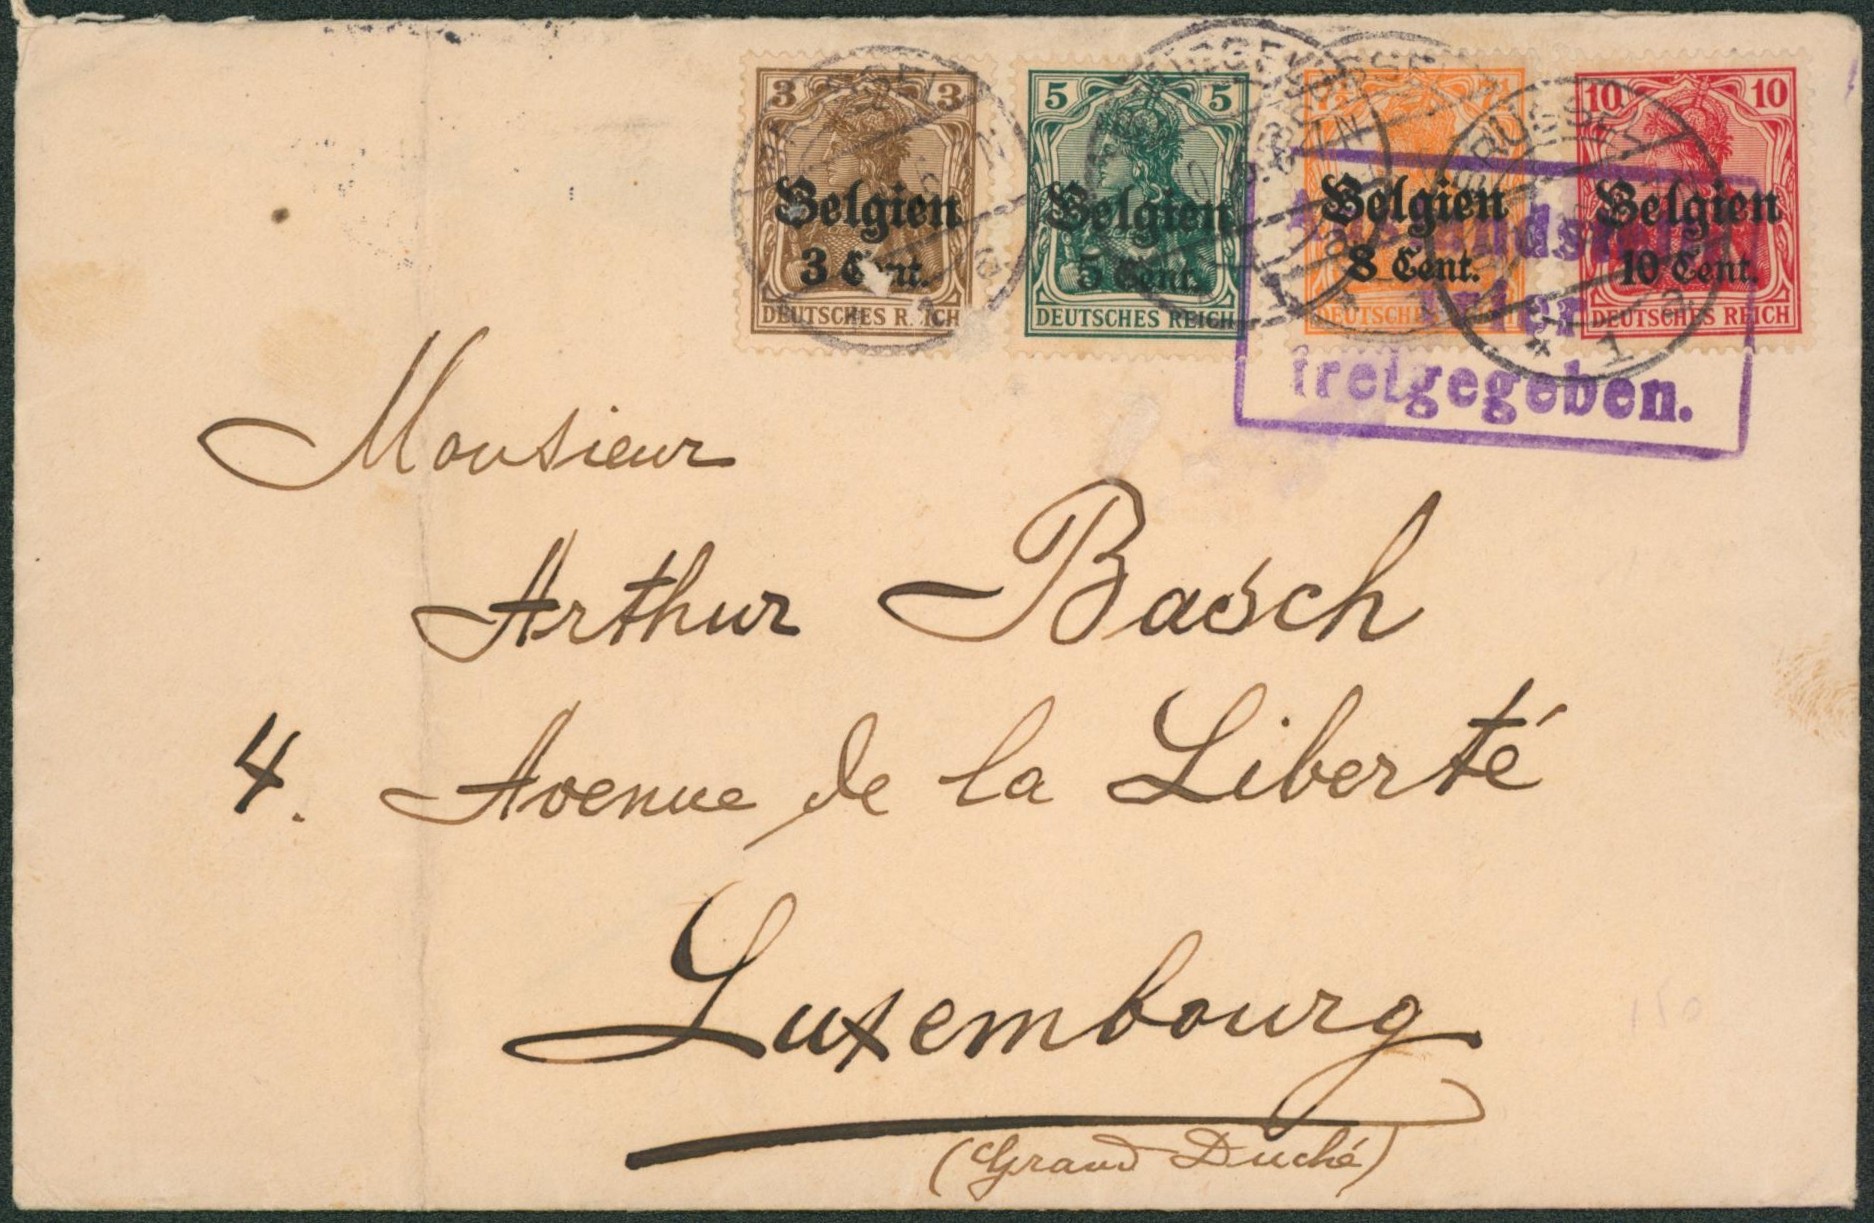 3 3
Belgien
3 Cent.
DEUTSCHES R. ICH
5 5
Belgien
5 Cent.
DEUTSCHES REICH
7½ 7½
Belgien
8 Cent.
DEUTSCHES
10 10
Belgien
10 Cent.
DEUTSCHES REICH
BRÜSSEL
freigegeben.
Monsieur
Arthur Basch
4. Avenue de la Liberté
Luxembourg
(Grand Duché)
150